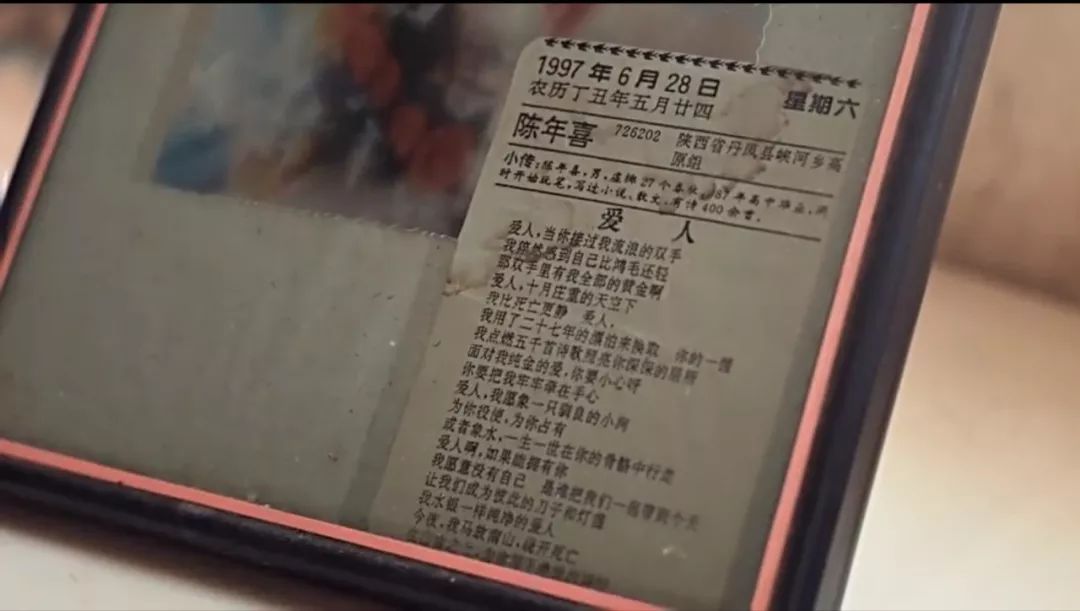 1997年6月28日 星期六
农历丁丑年五月廿四
陈年喜 726202 陕西省丹凤县峡河乡高
原组
小传:陈年喜,男,虚掷27个春秋,87年高中毕业,同
时开始玩笔,写过小说、散文,有诗400余首。
爱人
爱人,当你接过我流浪的双手
我猝然感到自己比鸿毛还轻
那双手里有我全部的黄金啊
爱人,十月庄重的天空下
我比死亡更静 爱人,
我用了二十七年的漂泊来换取 你的一握
我点燃五千首诗歌照亮你深深的眼睛
面对我纯金的爱,你要小心呀
你要把我牢牢牵在手心
爱人,我愿象一只驯良的小狗
为你役使,为你占有
或者象水,一生一世在你的骨骼中行走
爱人啊,如果能拥有你
我愿意没有自己 是谁把我们一起带到今天
让我们成为彼此的刀子和灯盏
我水银一样纯净的爱人
今夜,我马放南山,绕开死亡